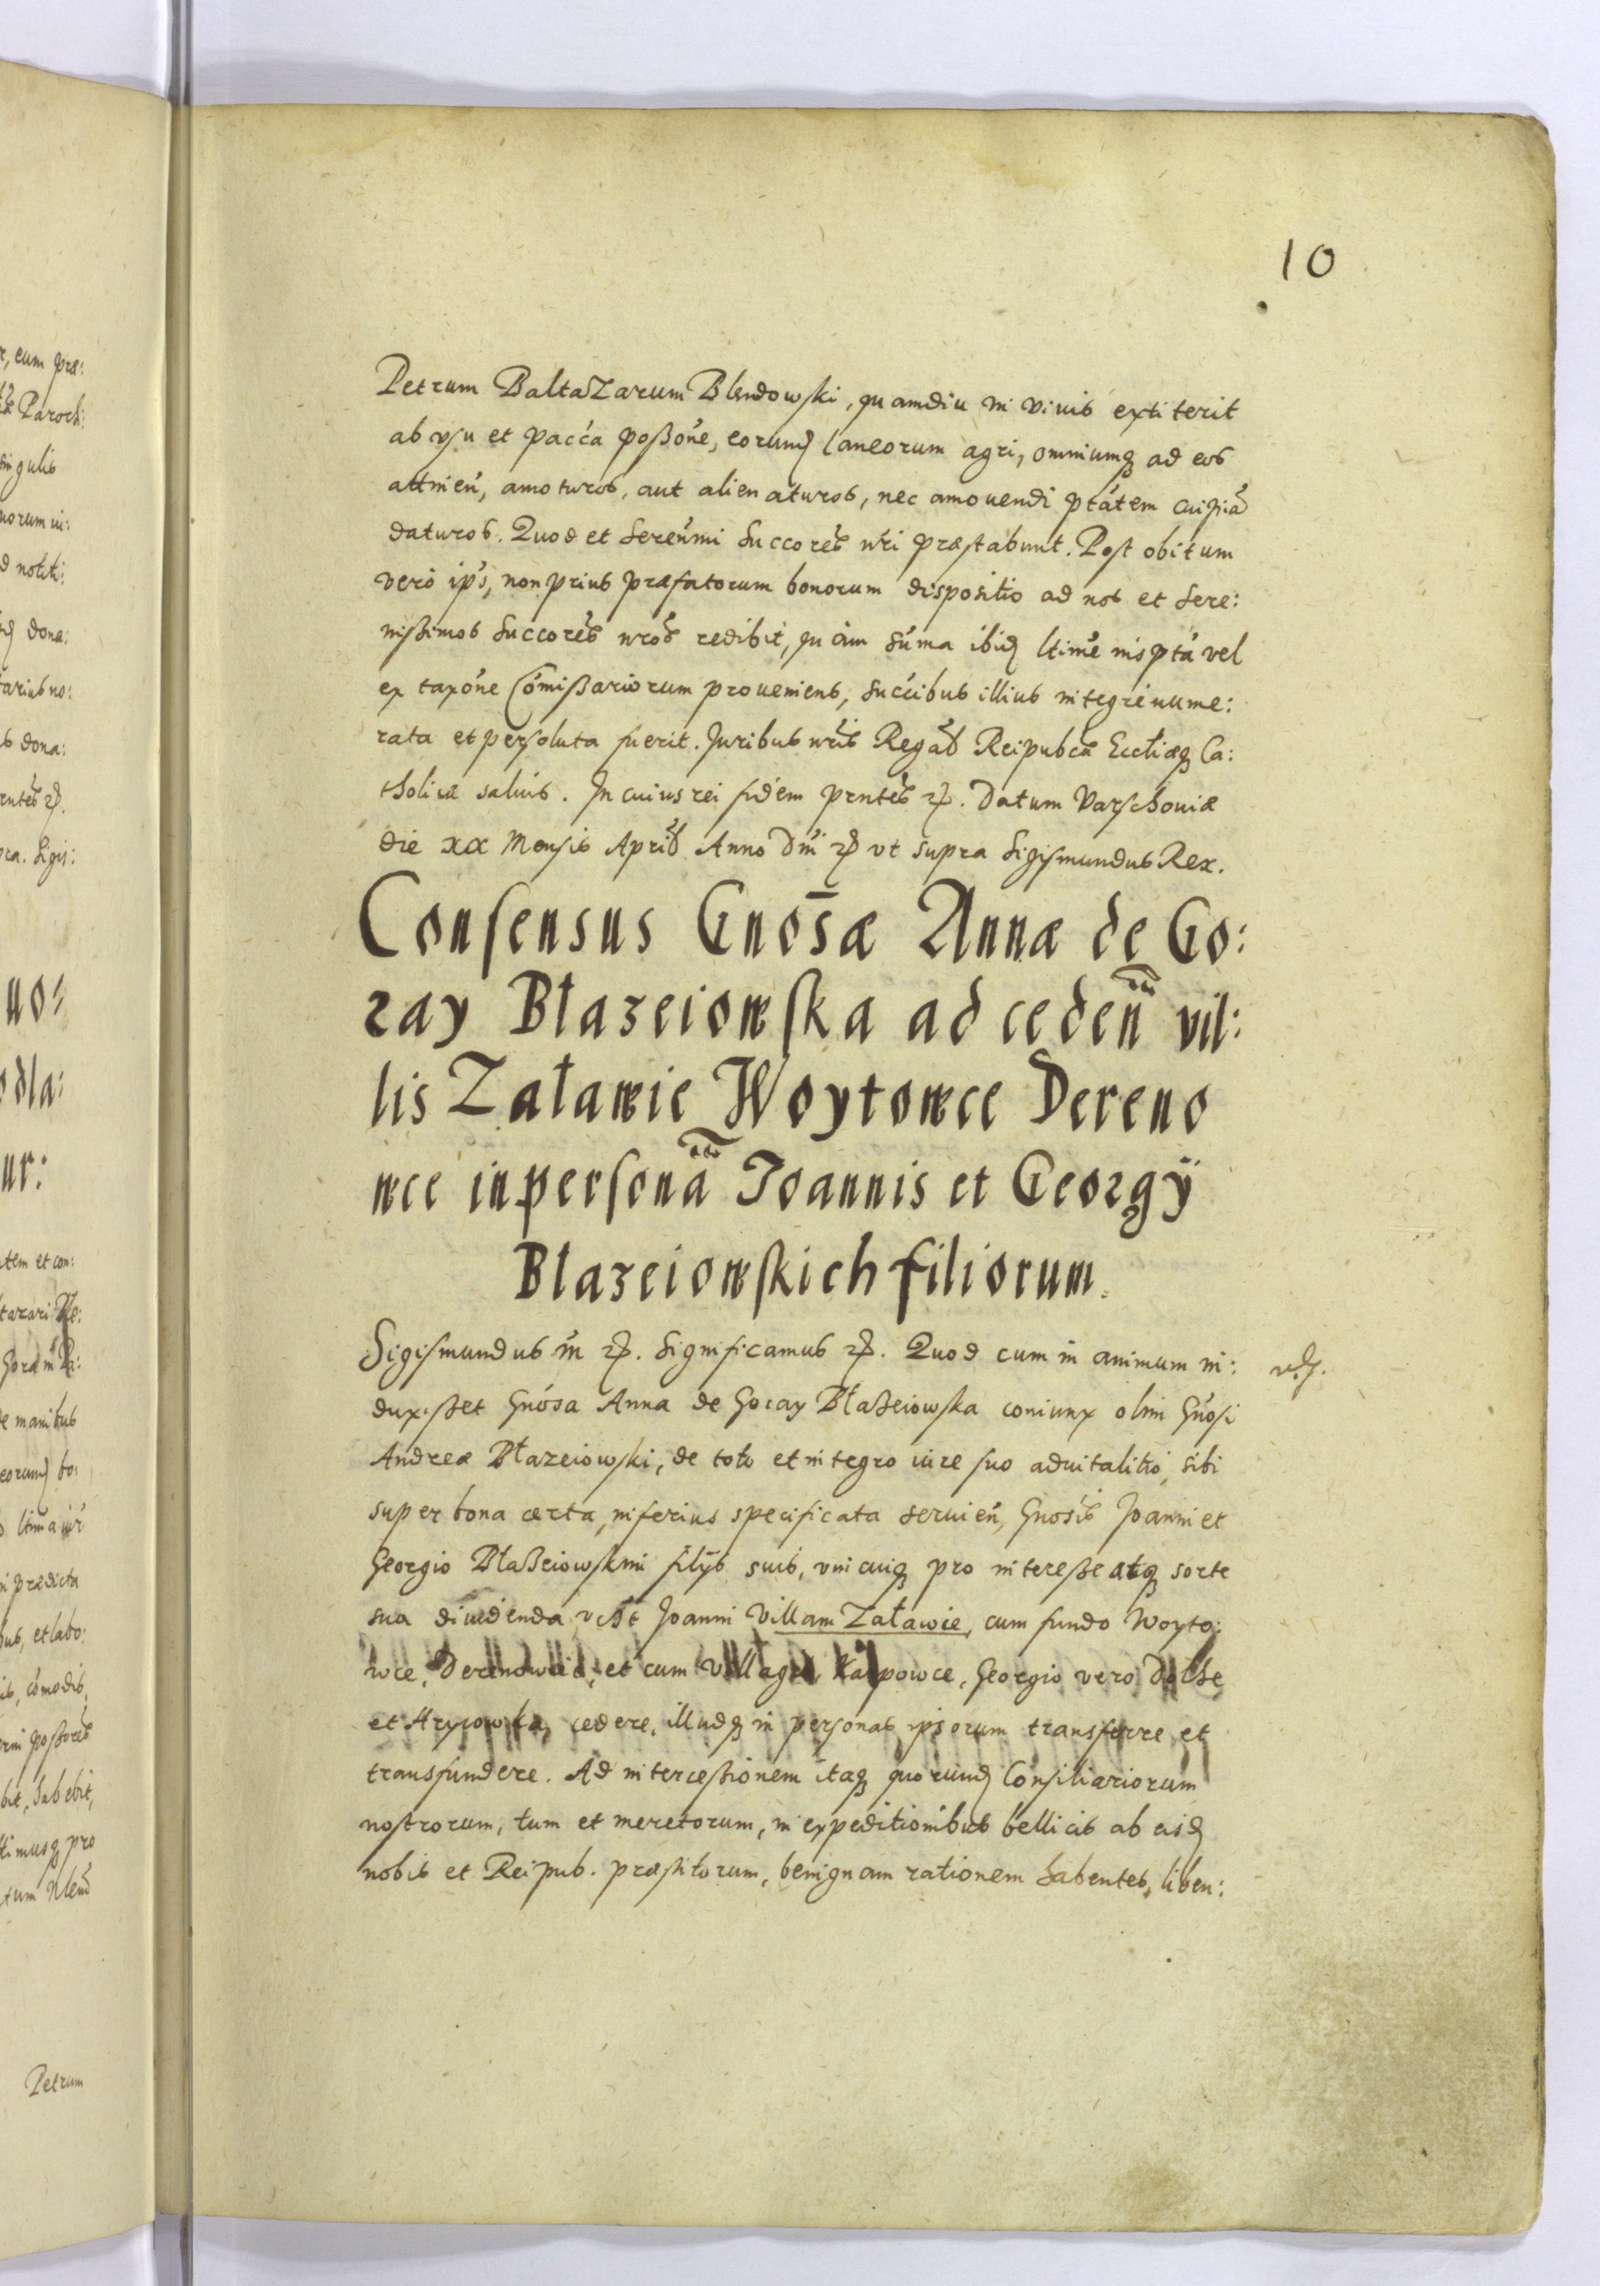 10
Petrum Baltazarum Blendowski, quamdiu in viuis extiterit
ab vsu et pacca possone, eorund laneorum agri, omniumq ad eos
attinen, amoturos, aut alienaturos, nec amouendi ptatem cuipia
daturos. Quod et Serenmi Succores nri præstabunt. Post obitum
vero ips, non prius præfatorum bonorum dispositio ad nos et Sere:
nissimos Succores nros redibit, quam suma ibid ltime inspta vel
ex taxone Comissariorum proueniens, succibus illius integre nume:
rata et persoluta fuerit. Juribus nris Regal Reipubcæ Eccliæq Ca:
tholicæ saluis. In cuius rei fidem pntes etc. Datum Varschouiæ
die XX Mensis April Anno Dni etc vt supra Sigismundus Rex.
Consensus Gnosæ Annæ de Go:
ray Błazeiowska ad ceden vil:
lis Załawie Woytowce Dereno
wce in persona Joannis et Georgÿ
Błazeiowskich filiorum.
Sigismundus in etc. Significamus etc. Quod cum in animum in:
duxisset Gnosa Anna de Goray Błaßeiowska coniunx olim Gnosi
Andreæ Błazeiowski, de toto et integro iure suo aduitalitio, sibi
super bona certa, inferius specificata seruien, Gnosis Joanni et
Georgio Błaßeiowskim filijs suis, vnicuiq pro interesse atq sorte
sua diuidenda vclt Joanni Villam Załawie, cum fundo Woyto:
wce, et cum Karpowce, Georgio vero
et cedere, illudq in personas ipsorum transferre et
transfundere. Ad intercessionem itaq quorund Consiliariorum
nostrorum, tum et meretorum, in expeditionibus bellicis ab eisd
nobis et Reipub. præstitorum, benignam rationem habentes, liben: